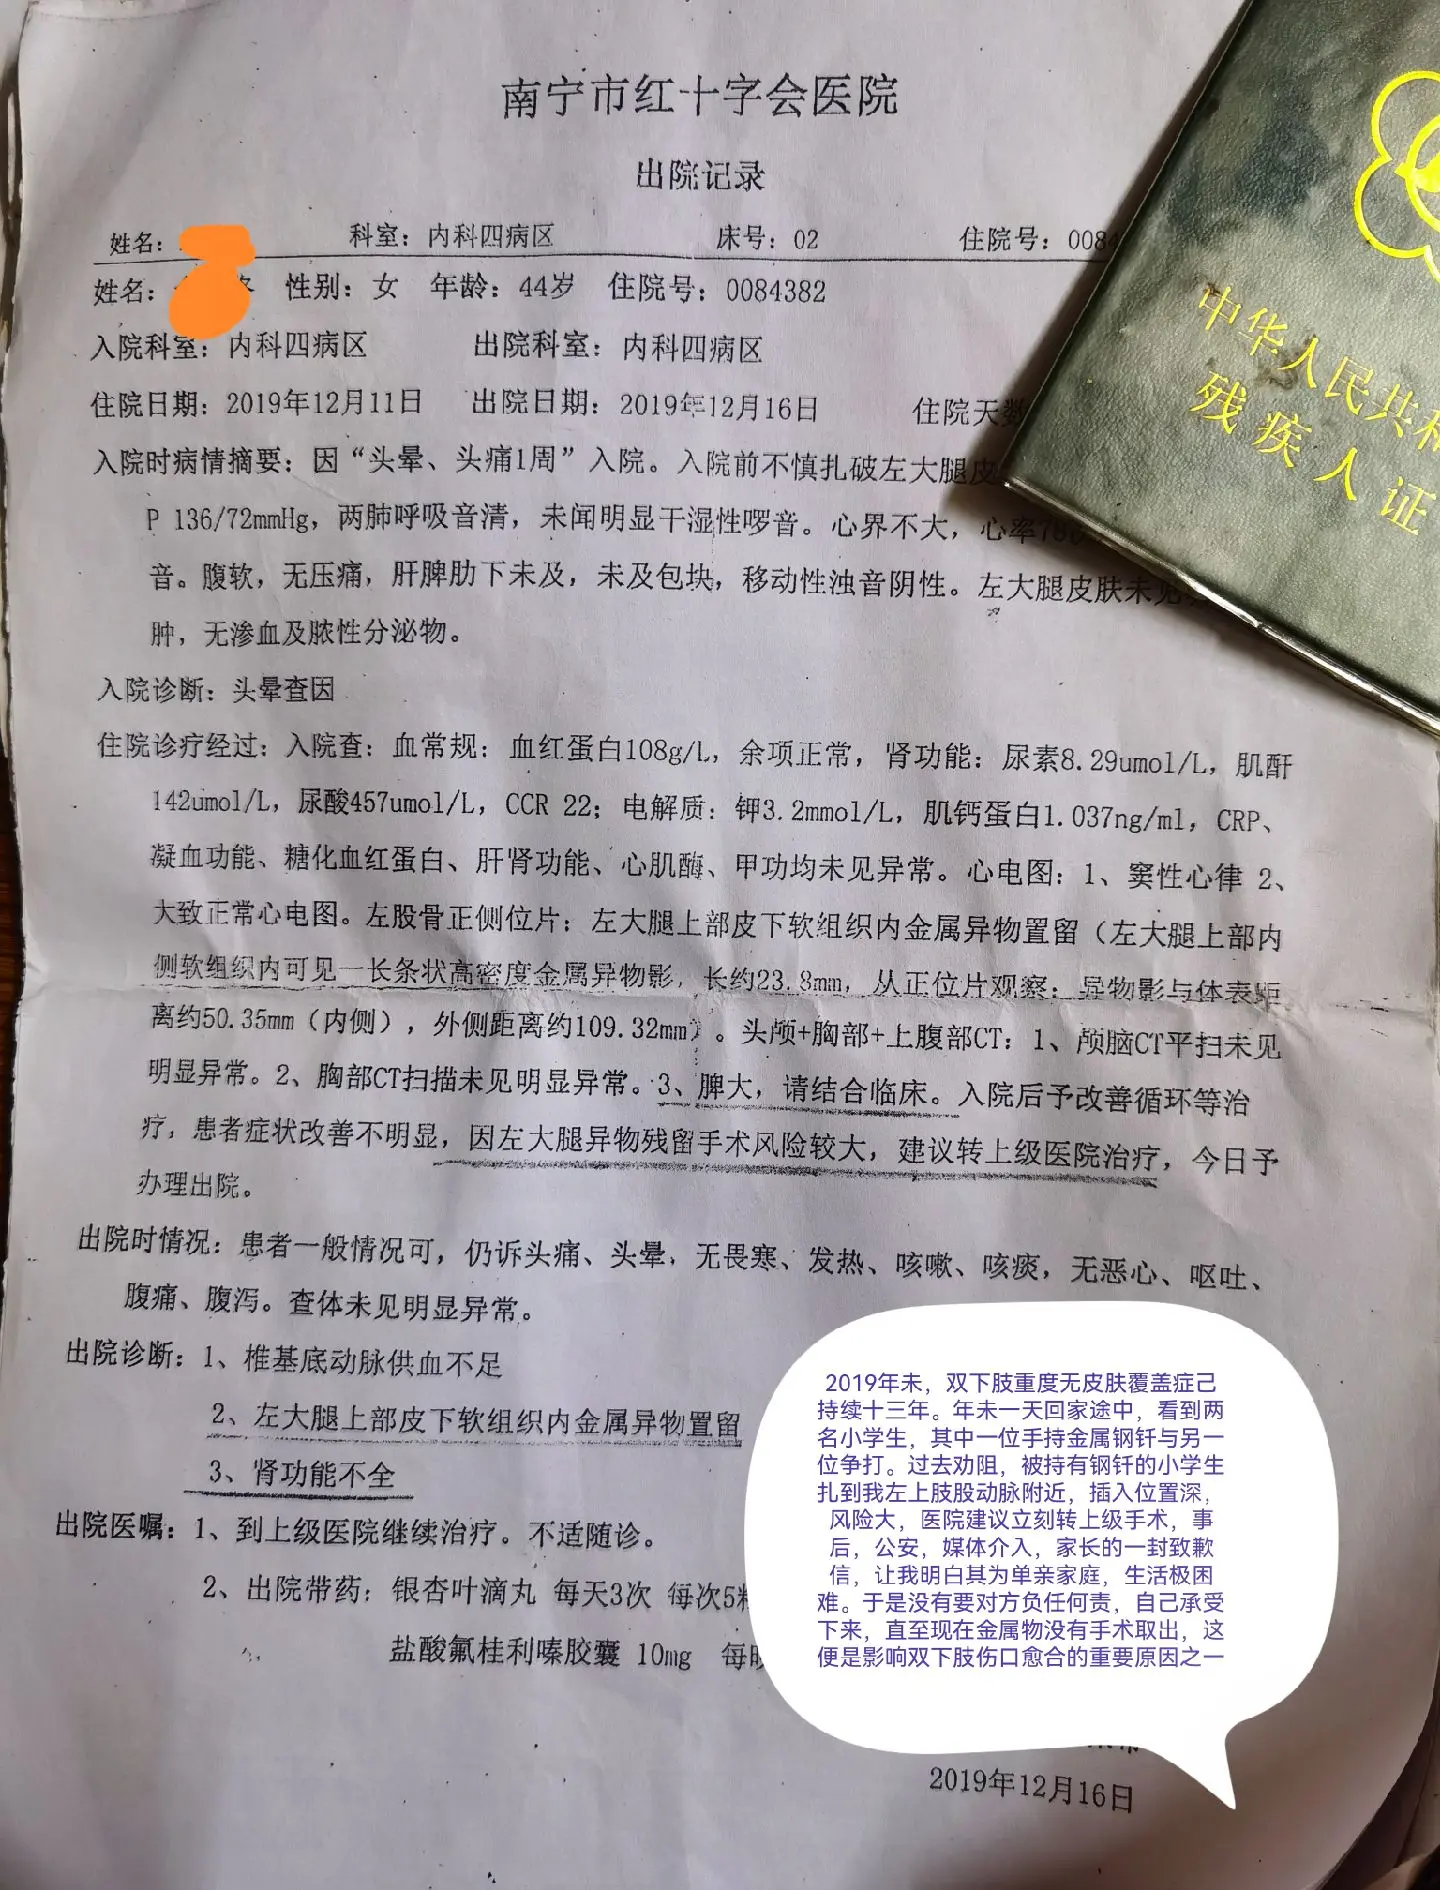 南宁市红十字会医院
出院记录
姓名： 科室：内科四病区 床号：02 住院号：0084
姓名： 性别：女 年龄：44岁 住院号：0084382
入院科室：内科四病区 出院科室：内科四病区
住院日期：2019年12月11日 出院日期：2019年12月16日 住院天数
入院时病情摘要：因“头晕、头痛1周”入院。入院前不慎扎破左大腿皮
P 136/72mmHg，两肺呼吸音清，未闻明显干湿性啰音。心界不大，心率78
音。腹软，无压痛，肝脾肋下未及，未及包块，移动性浊音阴性。左大腿皮肤未见
肿，无渗血及脓性分泌物。
入院诊断：头晕查因
住院诊疗经过：入院查：血常规：血红蛋白108g/L，余项正常，肾功能：尿素8.29umol/L，肌酐
142umol/L，尿酸457umol/L，CCR 22；电解质：钾3.2mmol/L，肌钙蛋白1.037ng/ml，CRP、
凝血功能、糖化血红蛋白、肝肾功能、心肌酶、甲功均未见异常。心电图：1、窦性心律 2、
大致正常心电图。左股骨正侧位片：左大腿上部皮下软组织内金属异物置留（左大腿上部内
侧软组织内可见一长条状高密度金属异物影，长约23.8mm，从正位片观察：异物影与体表距
离约50.35mm（内侧），外侧距离约109.32mm）。头颅+胸部+上腹部CT：1、颅脑CT平扫未见
明显异常。2、胸部CT扫描未见明显异常。3、脾大，请结合临床。入院后予改善循环等治
疗，患者症状改善不明显，因左大腿异物残留手术风险较大，建议转上级医院治疗，今日予
办理出院。
出院时情况：患者一般情况可，仍诉头痛、头晕，无畏寒、发热、咳嗽、咳痰，无恶心、呕吐、
腹痛、腹泻。查体未见明显异常。
出院诊断：1、椎基底动脉供血不足
2、左大腿上部皮下软组织内金属异物置留
3、肾功能不全
出院医嘱：1、到上级医院继续治疗。不适随诊。
2、出院带药：银杏叶滴丸 每天3次 每次5粒
盐酸氟桂利嗪胶囊 10mg 每晚
2019年12月16日
中华人民共和
残疾人证
2019年未，双下肢重度无皮肤覆盖症己
持续十三年。年未一天回家途中，看到两
名小学生，其中一位手持金属钢钎与另一
位争打。过去劝阻，被持有钢钎的小学生
扎到我左上肢股动脉附近，插入位置深，
风险大，医院建议立刻转上级手术，事
后，公安，媒体介入，家长的一封致歉
信，让我明白其为单亲家庭，生活极困
难。于是没有要对方负任何责，自己承受
下来，直至现在金属物没有手术取出，这
便是影响双下肢伤口愈合的重要原因之一